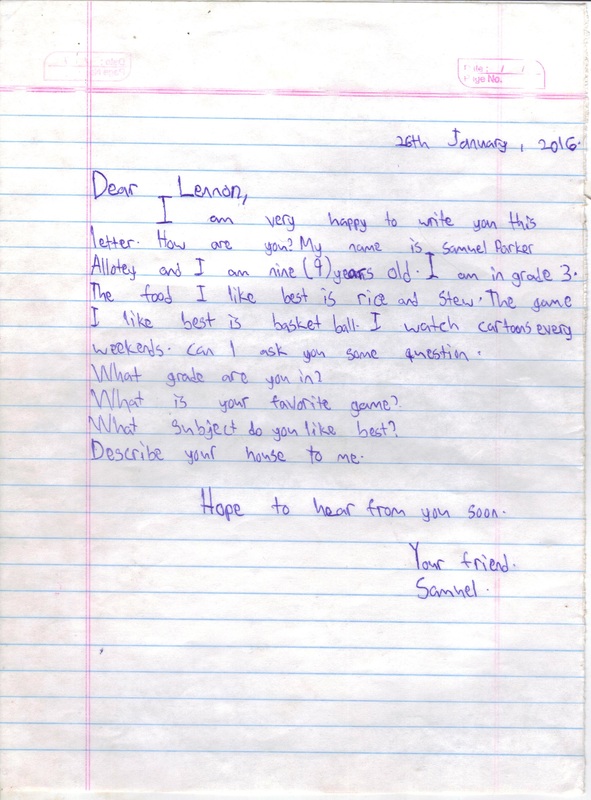 Date : / /
Page No.
26th January, 2016.
Dear Lennon,
I am very happy to write you this
letter. How are you? My name is Samuel Parker
Allotey and I am nine (9) years old. I am in grade 3.
The food I like best is rice and stew. The game
I like best is basket ball. I watch cartoons every
weekends. can I ask you some question.
What grade are you in?
What is your favorite game?
What subject do you like best?
Describe your house to me.
Hope to hear from you soon.
Your friend.
Samuel.